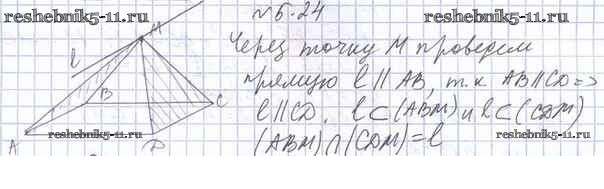 reshebnik5-11.ru
№5.24
reshebnik5-11.ru
M
Через точку M проведем
l
прямую l || AB, т.к AB || CD =>
B
C
l || CD. l ⊂ (ABM) и l ⊂ (CDM)
A
reshebnik5-11.ru
D
(ABM) ∩ (CDM) = l
reshebnik5-11.ru